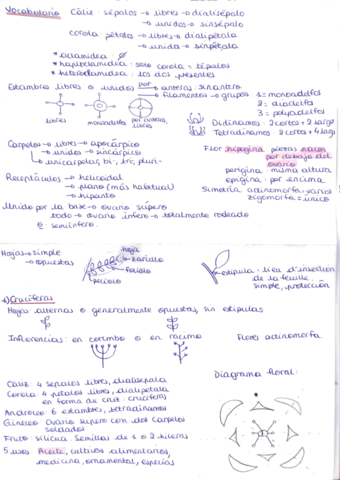 Vocabulario Cáliz: sépalos → libres → dialisépalo
→ unidos → sinsépalo
corola pétalos → libres → dialipétala
→ unida → sinpétala
* aclamidea Ø
* haploclamidea: solo corola = tépalos
* heteroclamidea: los dos presentes
Estambres libres o unidos por → anteras: sinantero
→ filamentos → grupos 1: monadelfos
2: diadelfos
3: polyadelfos
libres monadelfo por anteras, libres
Didínamos: 2 cortos + 2 largos
Tetradínamos 2 cortos + 4 largos
Carpelos → libres → apocárpico
→ unidos → sincárpico
→ unicarpelar, bi-, tri, pluri-
Flor hipogina piezas nacen
por debajo del
ovario
perigina: misma altura
epigina: por encima.
Receptáculos → helicoidal
→ plano (más habitual)
→ hipanto
Simetría actinomorfa: varios
zigomorfa = único
Unido por la base → ovario súpero
todo → ovario ínfero → totalmente rodeado
o semiínfero.
Hojas → simple
→ opuestas
hoja
foliolo
peciolo
estípula = lieu d'insertion
de la feuille
simple, protección
1) Crucíferas
Hojas alternas o generalmente opuestas, sin estípulas
Inflorencias: en corimbo o en racimo Flores actinomorfa.
Cáliz: 4 sépalos libres, dialisépala
Corola 4 pétalos libres, dialipétala
en forma de cruz: cruciferas
Diagrama floral:
Androceo 6 estambres, tetradínamos
Gineceo Ovario supero con dos carpelos
soldados
Fruto: silicua. Semillas de 1 o 2 hileras
5 usos Aceite, cultivos alimentarios,
medicina, ornamental, especias